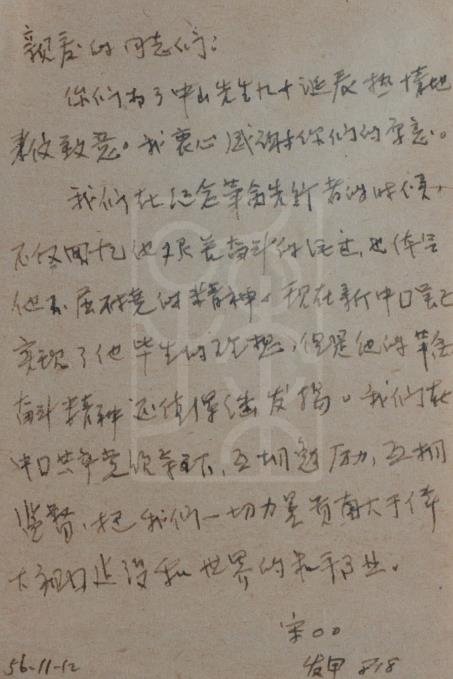 亲爱的同志们:
你们为了中山先生九十诞辰热情地
来仪致意。我衷心感谢你们的厚意。
我们在纪念革命先行者的时候,
不仅回忆他艰苦奋斗的经过,也体会
他不屈不挠的精神。现在新中国已
实现了他毕生的理想,但是他的革命
奋斗精神还值得继发扬。我们在
中国共产党领导下,互相勉励,互相
监督,把我们一切力量贡献于伟
大祖国建设和世界的和平事业。
宋○○
56-11-12
发甲 818